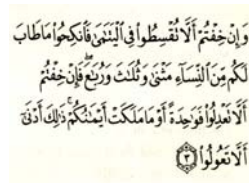 وَإِنْ خِفْتُمْ أَلَّا تُقْسِطُوا۟ فِى ٱلْيَتَـٰمَىٰ فَٱنكِحُوا۟ مَا طَابَ
لَكُم مِّنَ ٱلنِّسَآءِ مَثْنَىٰ وَثُلَـٰثَ وَرُبَـٰعَ ۖ فَإِنْ خِفْتُمْ
أَلَّا تَعْدِلُوا۟ فَوَٰحِدَةً أَوْ مَا مَلَكَتْ أَيْمَـٰنُكُمْ ۚ ذَٰلِكَ أَدْنَىٰٓ
أَلَّا تَعُولُوا۟ ٣